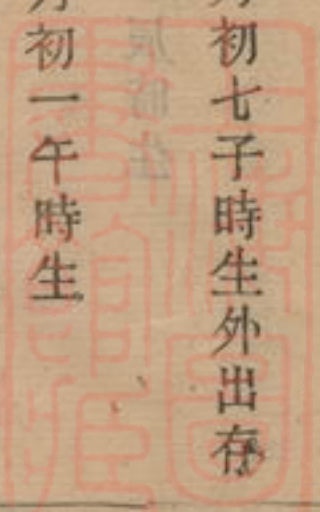 月初七子時生外出存
月初一午時生